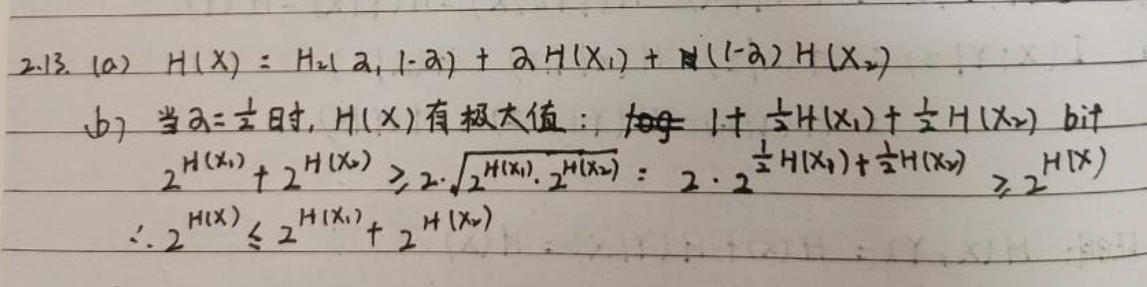 2.13. (a) H(X) = H₂(α, 1-α) + αH(X₁) + (1-α) H(X₂)
(b) 当α=½时, H(X)有极大值: 1+ ½H(X₁)+½H(X₂) bit
2^{H(X₁)} + 2^{H(X₂)} ≥ 2·√(2^{H(X₁)}·2^{H(X₂)}) = 2·2^{½H(X₁)+½H(X₂)} ≥ 2^{H(X)}
∴ 2^{H(X)} ≤ 2^{H(X₁)} + 2^{H(X₂)}